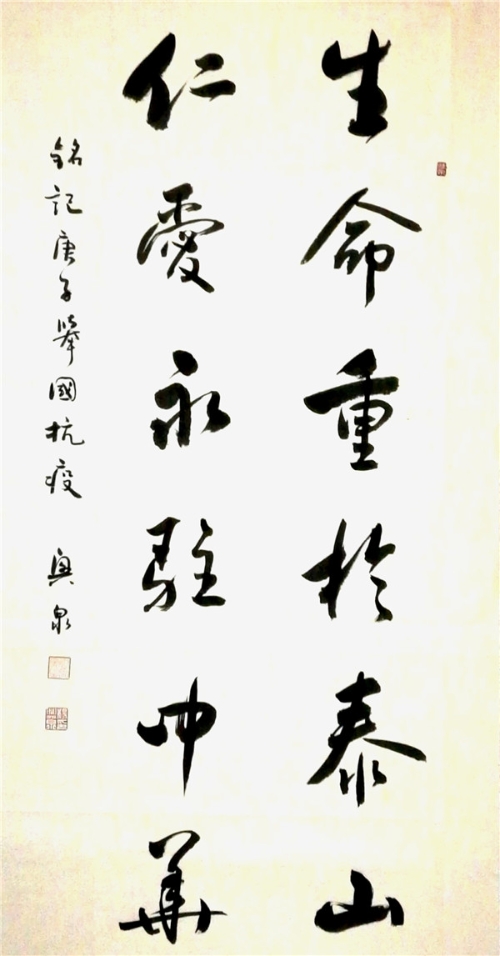 生命重於泰山
仁愛永駐中華
銘記庚子舉國抗疫 奧泉